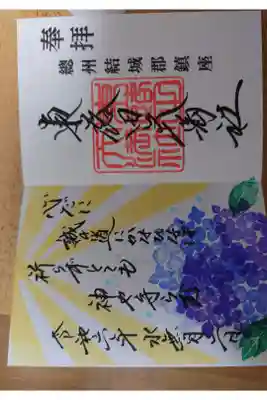 奉拝
總州結城郡鎮座
東蕗田天満社
心だに
誠の道にかなひなば
祈らずとても
神や守らむ
令和 年 水無月 日